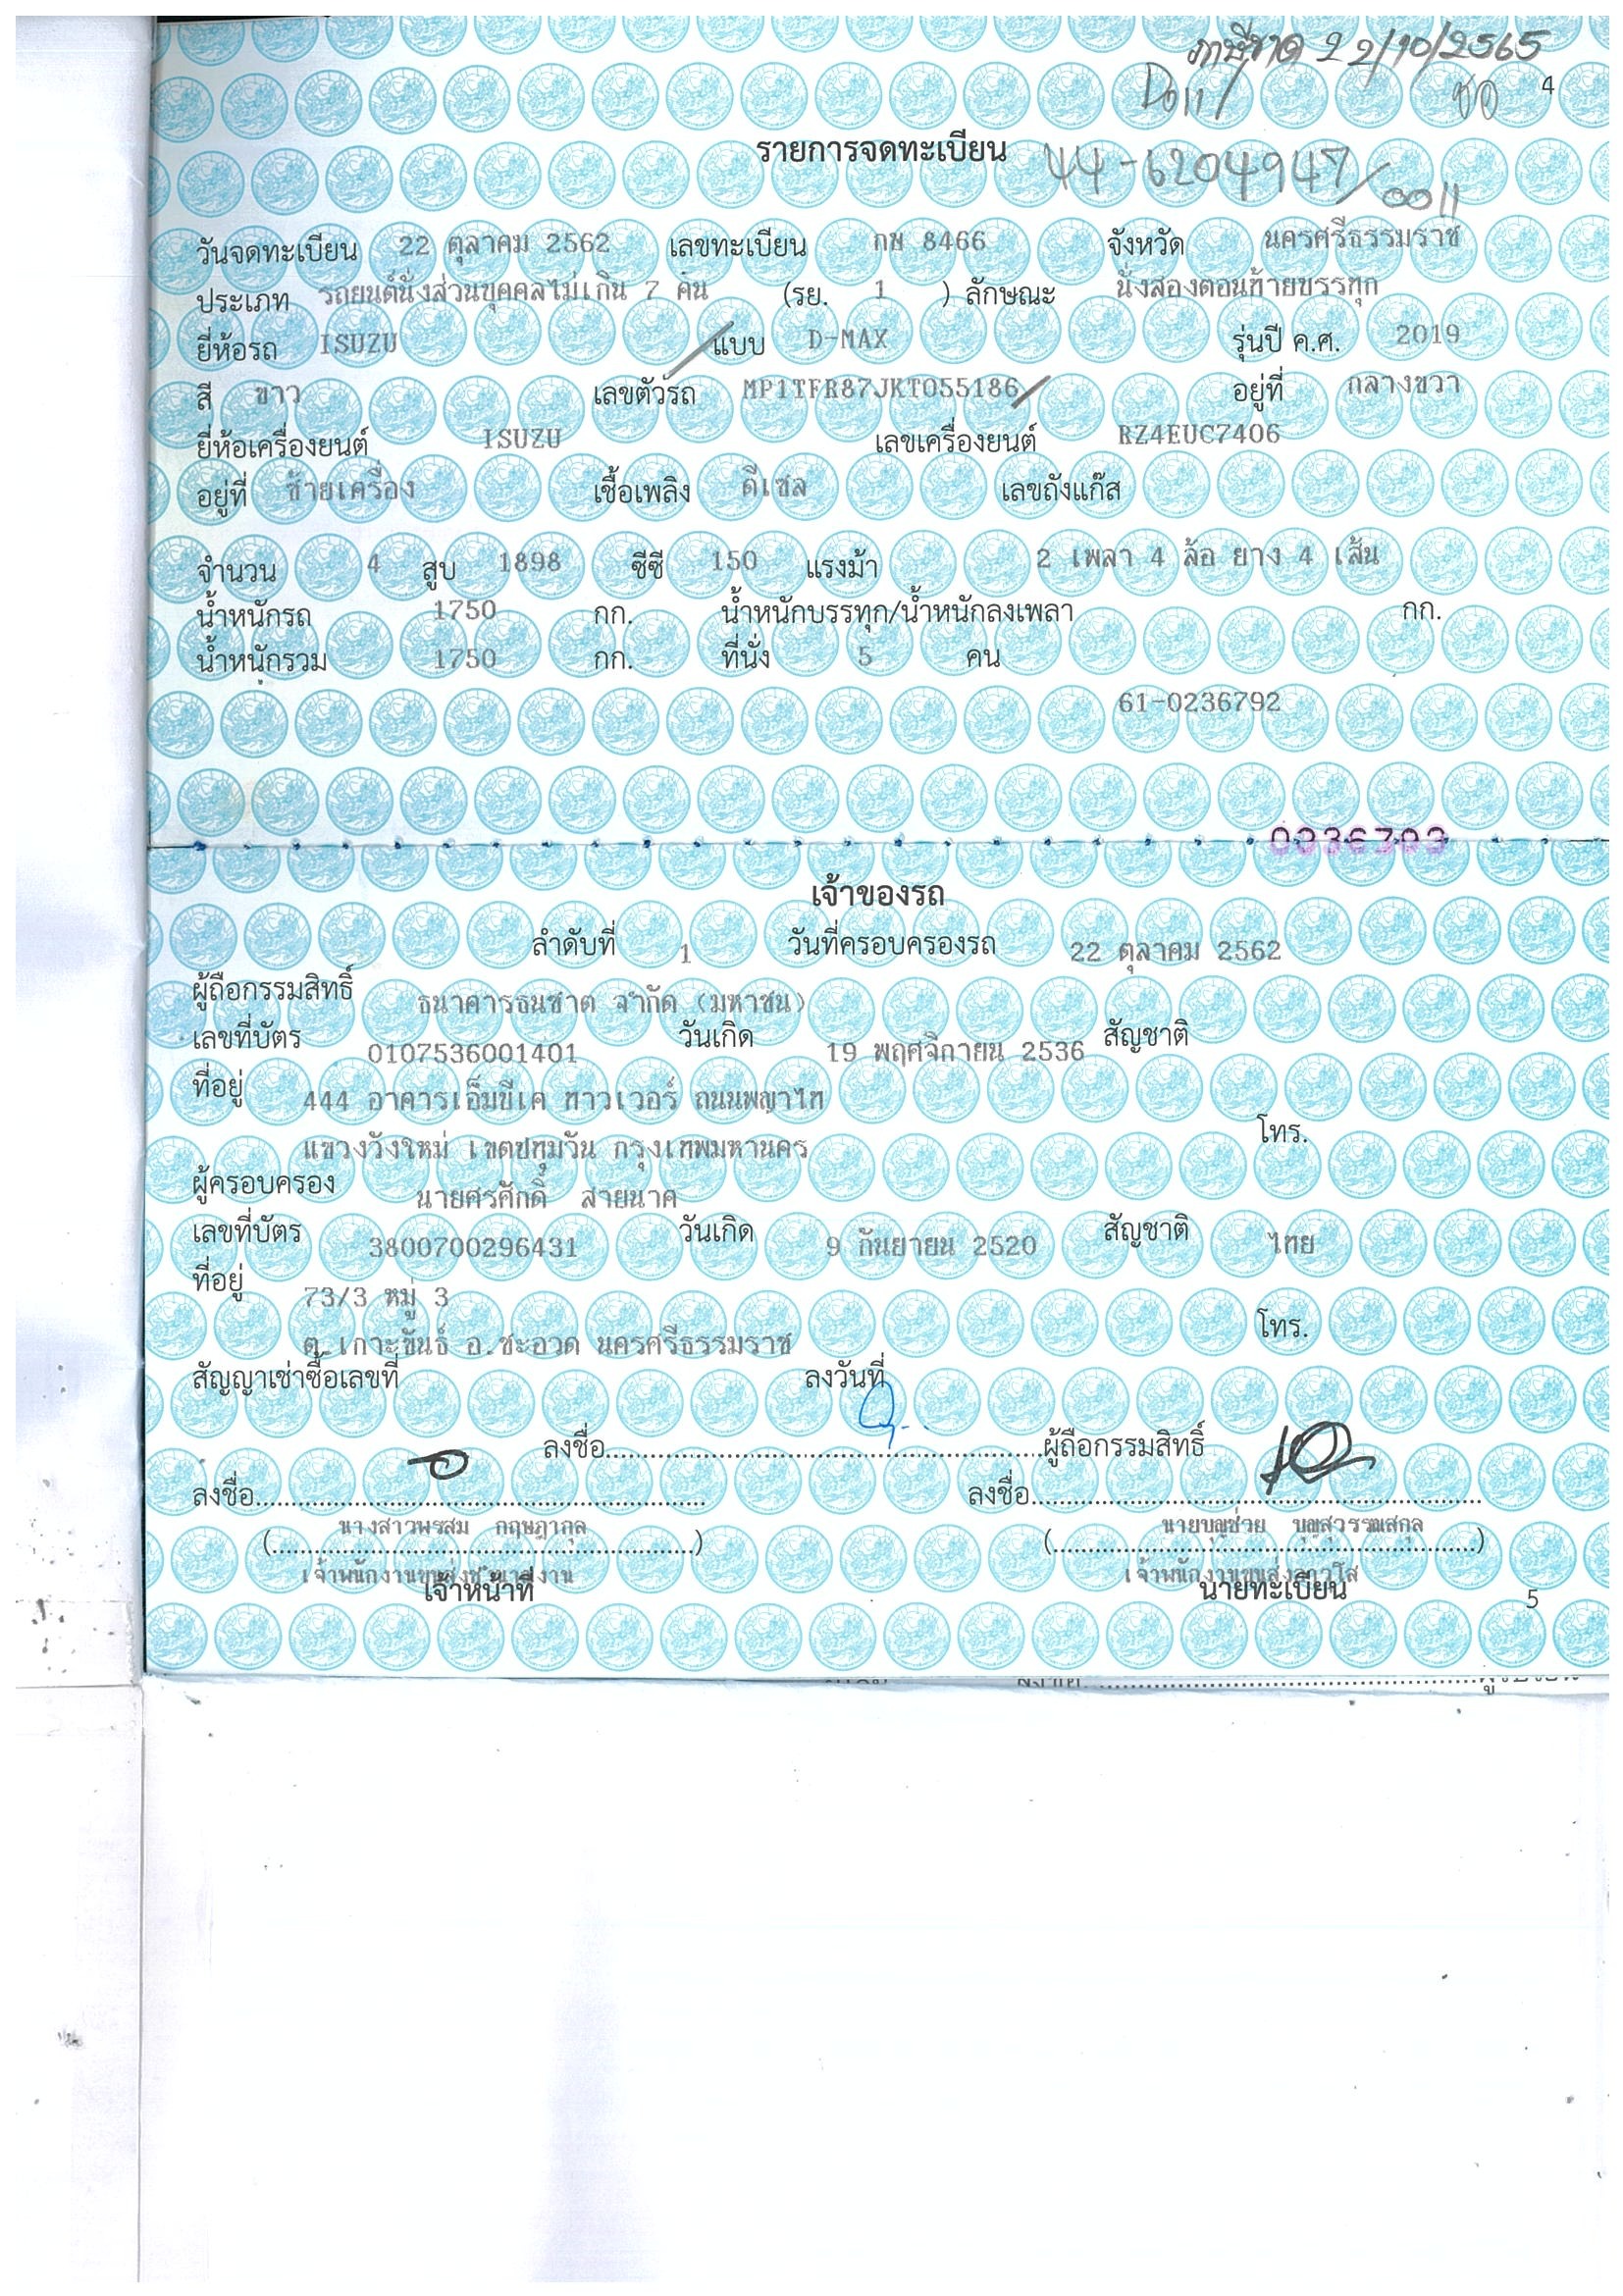 ภาษีขาด 22/10/2565
4
รายการจดทะเบียน 44-6204947/0011
วันจดทะเบียน 22 ตุลาคม 2562 เลขทะเบียน กษ 8466 จังหวัด นครศรีธรรมราช
ประเภท รถยนต์นั่งส่วนบุคคลไม่เกิน 7 คน (รย. 1 ) ลักษณะ นั่งสองตอนท้ายบรรทุก
ยี่ห้อรถ ISUZU แบบ D-MAX รุ่นปี ค.ศ. 2019
สี ขาว เลขตัวรถ MP1TFR87JKT055186 อยู่ที่ กลางขวา
ยี่ห้อเครื่องยนต์ ISUZU เลขเครื่องยนต์ RZ4EUC7406
อยู่ที่ ซ้ายเครื่อง เชื้อเพลิง ดีเซล เลขถังแก๊ส
จำนวน 4 สูบ 1898 ซีซี 150 แรงม้า 2 เพลา 4 ล้อ ยาง 4 เส้น
น้ำหนักรถ 1750 กก. น้ำหนักบรรทุก/น้ำหนักลงเพลา กก.
น้ำหนักรวม 1750 กก. ที่นั่ง 5 คน
61-0236792
เจ้าของรถ
ลำดับที่ 1 วันที่ครอบครองรถ 22 ตุลาคม 2562
ผู้ถือกรรมสิทธิ์ ธนาคารธนชาต จำกัด (มหาชน)
เลขที่บัตร 0107536001401 วันเกิด 19 พฤศจิกายน 2536 สัญชาติ
ที่อยู่ 444 อาคารเอ็มบีเค ทาวเวอร์ ถนนพญาไท
แขวงวังใหม่ เขตปทุมวัน กรุงเทพมหานคร โทร.
ผู้ครอบครอง นายศรศักดิ์ สายนาค
เลขที่บัตร 3800700296431 วันเกิด 9 กันยายน 2520 สัญชาติ ไทย
ที่อยู่ 73/3 หมู่ 3
ต.เกาะขันธ์ อ.ชะอวด นครศรีธรรมราช โทร.
สัญญาเช่าซื้อเลขที่ ลงวันที่
ลงชื่อ ผู้ถือกรรมสิทธิ์
ลงชื่อ ลงชื่อ
(นางสาวพรสม กฤษฎากุล) (นายบุญช่วย บุญสุวรรณสกุล)
เจ้าพนักงานขนส่งชำนาญงาน เจ้าพนักงานขนส่งอาวุโส
เจ้าหน้าที่ นายทะเบียน
5